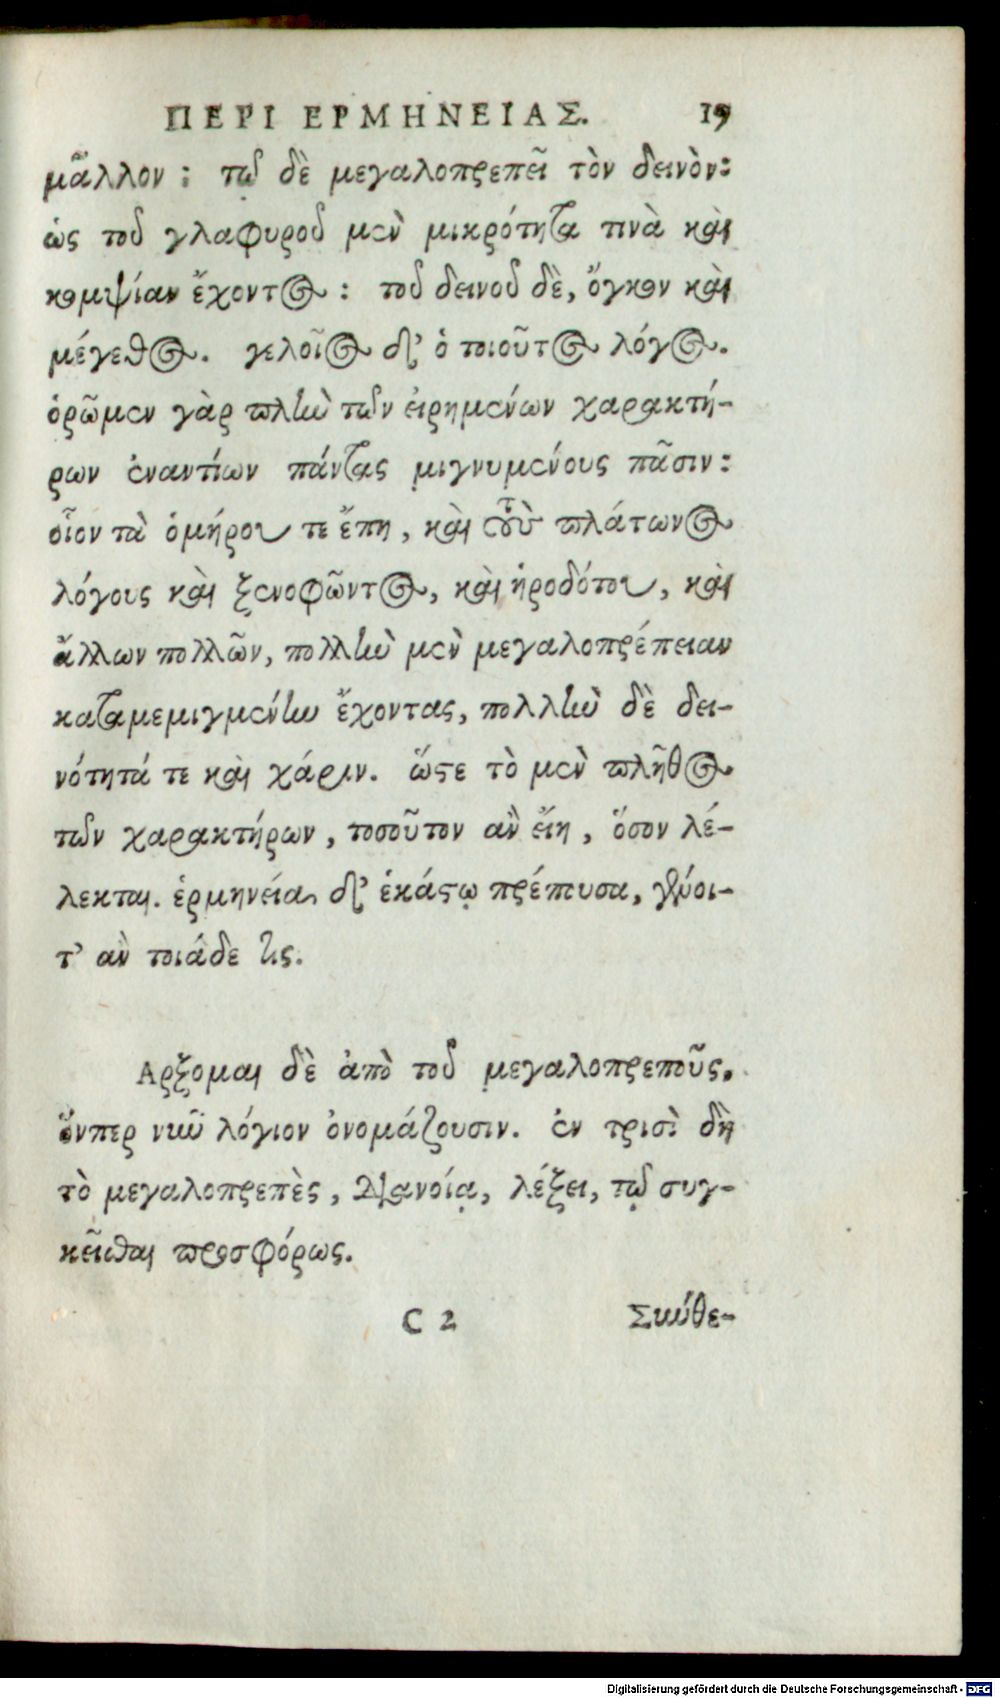 ΠΕΡΙ ΕΡΜΗΝΕΙΑΣ. 19
μᾶλλον : τῷ δὲ μεγαλοπρεπεῖ τὸν δεινὸν:
ὡς τοῦ γλαφυροῦ μὲν μικρότητα τινὰ καὶ
κομψίαν ἔχοντος : τοῦ δεινοῦ δὲ, ὄγκον καὶ
μέγεθος. γελοῖος δ' ὁ τοιοῦτος λόγος.
ὁρῶμεν γὰρ πλὴν τῶν εἰρημένων χαρακτή-
ρων ἐναντίων πάντας μιγνυμένους πᾶσιν:
οἷον τὰ ὁμήρου τε ἔπη, καὶ τοὺς πλάτωνος
λόγους καὶ ξενοφῶντος, καὶ ἡροδότου, καὶ
ἄλλων πολλῶν, πολλὴν μὲν μεγαλοπρέπειαν
καταμεμιγμένην ἔχοντας, πολλὴν δὲ δει-
νότητά τε καὶ χάριν. ὥστε τὸ μὲν πλῆθος
τῶν χαρακτήρων, τοσοῦτον ἂν εἴη, ὅσον λέ-
λεκται. ἑρμηνεία δ' ἑκάστῳ πρέπουσα, γένοι-
τ' ἂν τοιάδε τις.
Αρξομαι δὲ ἀπὸ τοῦ μεγαλοπρεποῦς,
ὅνπερ νῦν λόγιον ὀνομάζουσιν. ἐν τρισὶ δὴ
τὸ μεγαλοπρεπὲς, διανοίᾳ, λέξει, τῷ συγ-
κεῖσθαι προσφόρως.
C 2 Σωύθε-
Digitalisierung gefördert durch die Deutsche Forschungsgemeinschaft - DFG